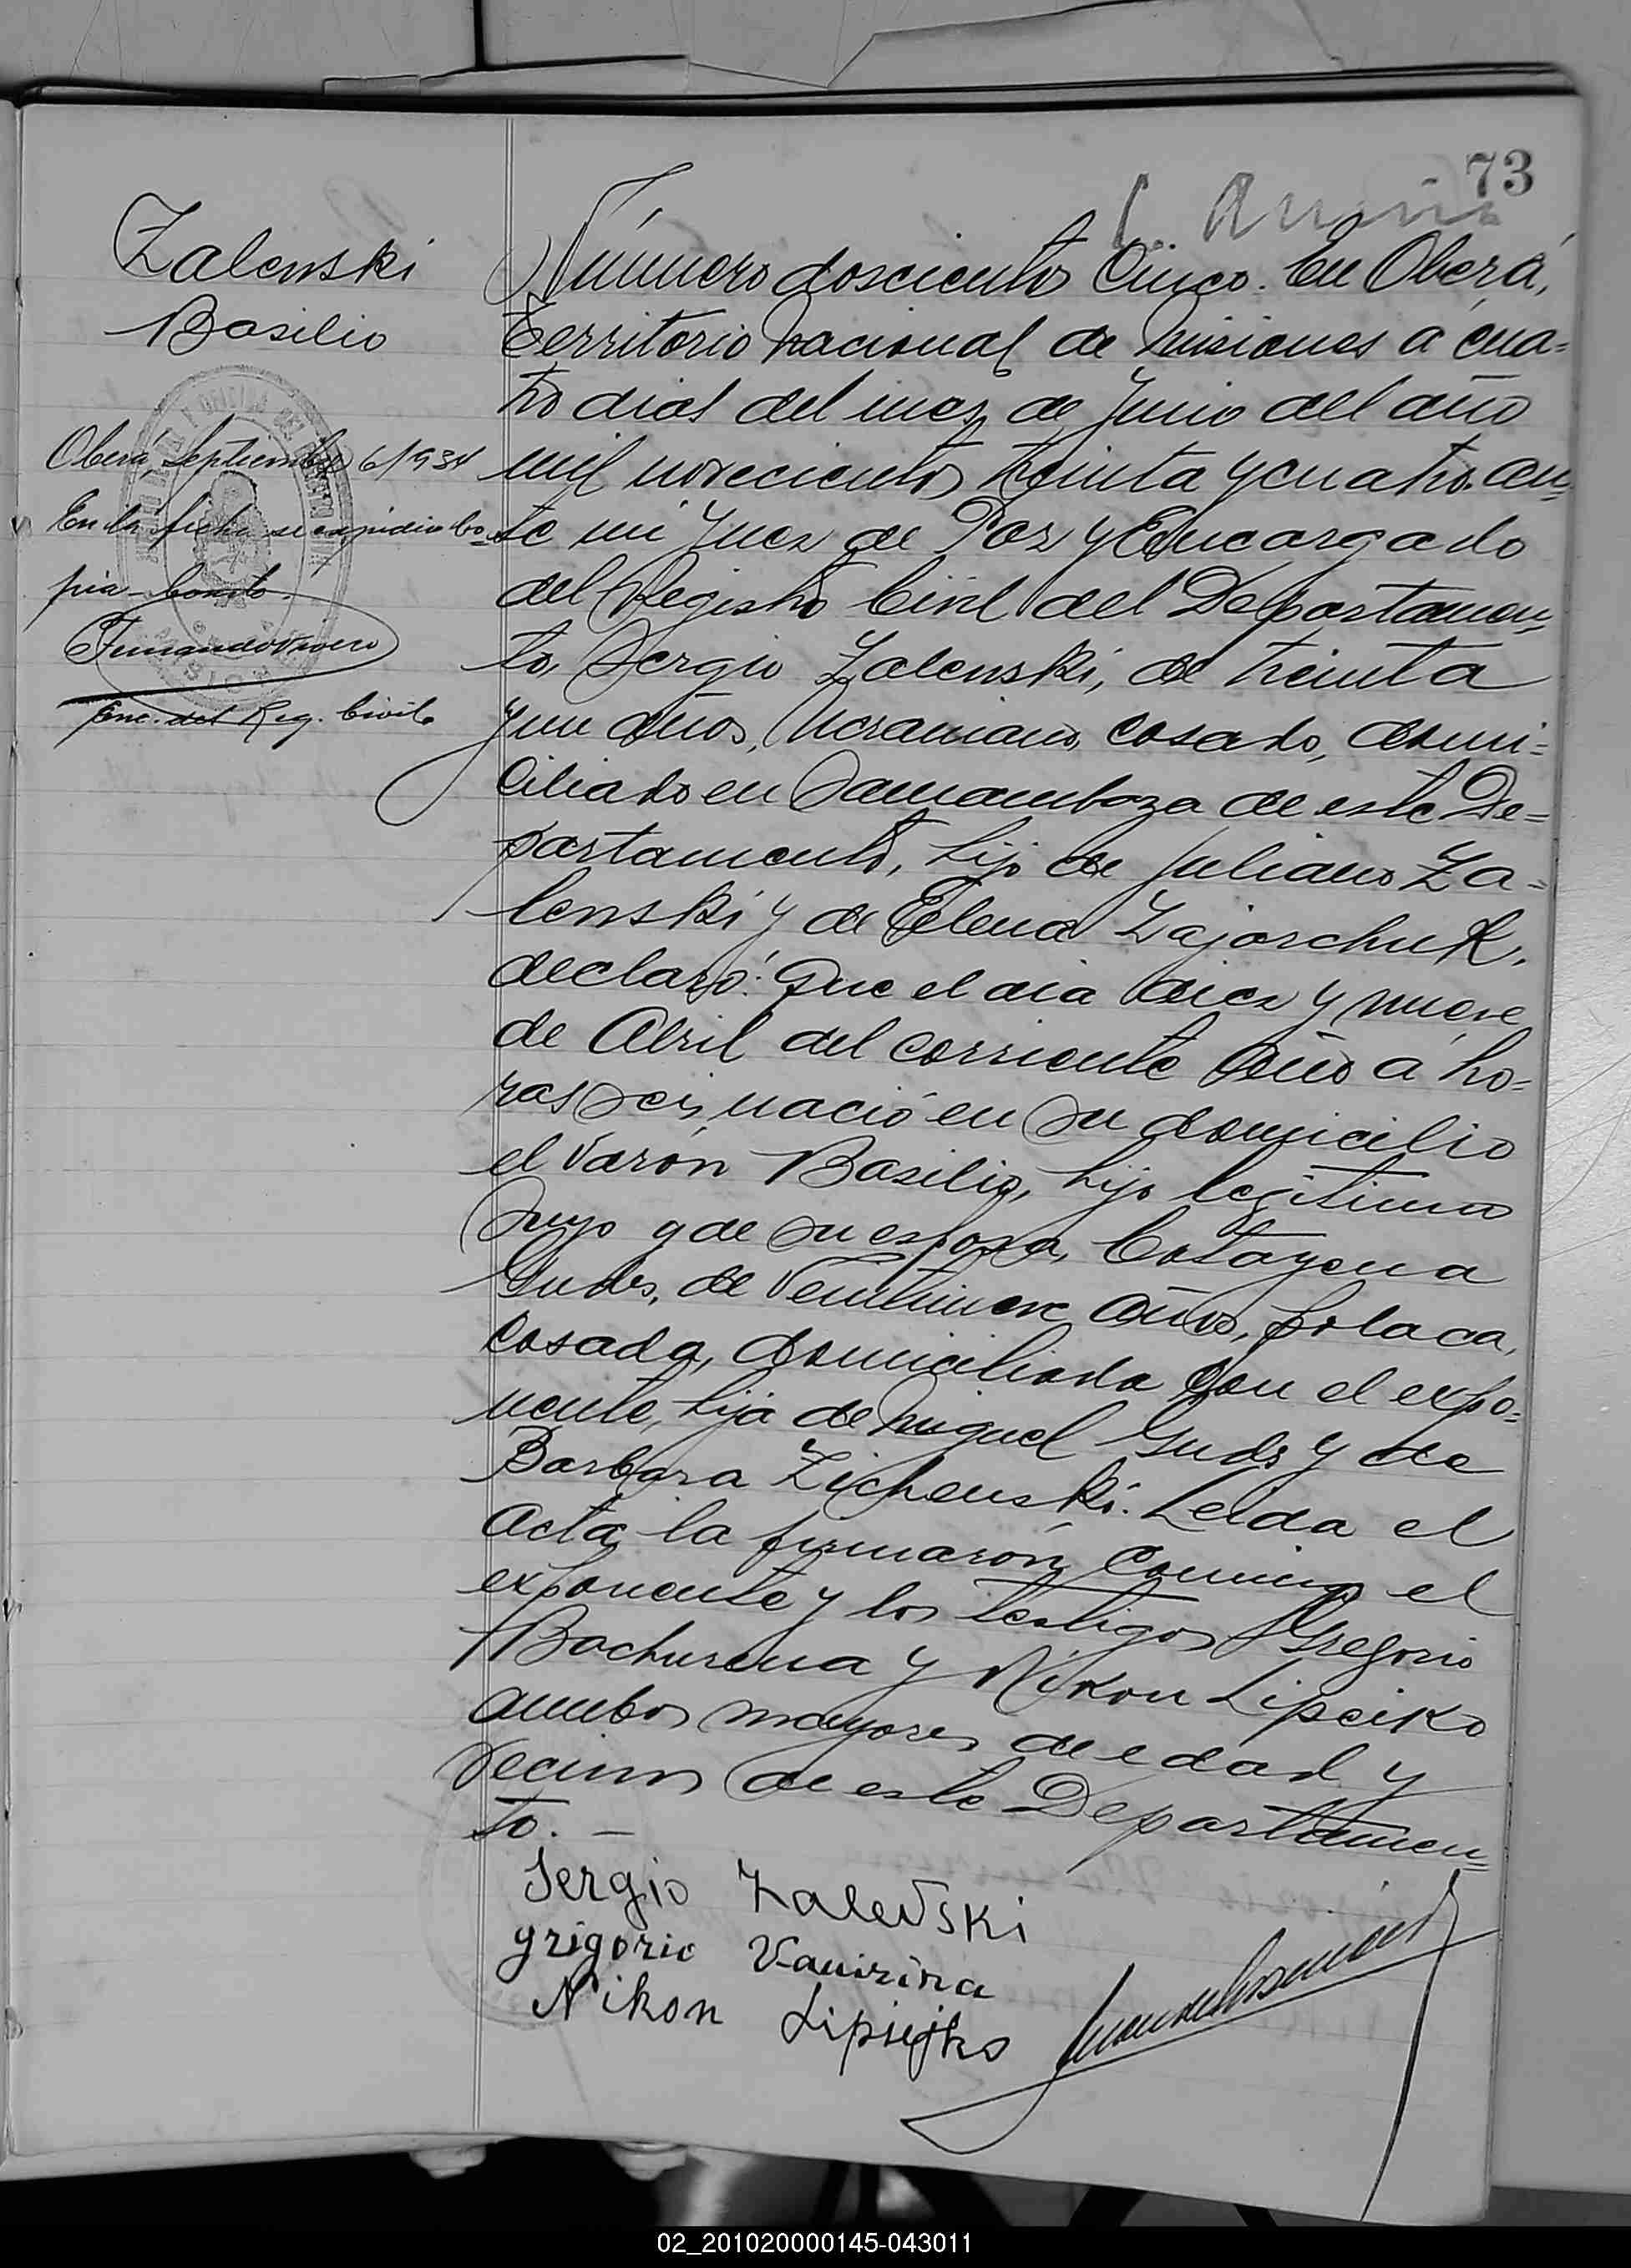 73
Zalenski
Basilio
Oberá, Septiembre 6/934
En la fecha se expidio co-
pia. Conste.
Enc. del Reg. Civil
Número doscientos Cinco. En Oberá,
Territorio Nacional de Misiones a cua-
tro dias del mes de Junio del año
mil novecientos treinta y cuatro. an-
te mi Juez de Paz y Encargado
del Registro Civil del Departamen-
to, Sergio Zalenski, de treinta
y un años, Ucraniano, casado, domi-
ciliado en Samambaza de este De-
partamento, hijo de Juliano Za-
lenski y de Elena Zajarchuk,
declaró: Que el dia diez y nueve
de Abril del corriente año a ho-
ras seis, nació en su domicilio
el varón Basilio, hijo legitimo
suyo y de su esposa, Catayena
Guds, de veintinueve años, polaca,
casada, domiciliada con el expo-
nente, hija de Miguel Guds y de
Barbara Zichenski. Leida el
acta, la firmarón conmigo el
exponente y los testigos Gregorio
Bachurena y Nikon Lipeiko
ambos mayores de edad y
vecinos de este Departamen-
to. —
Sergio Zalevski
Grigorio
Nikon Lipiejko
02_201020000145-043011